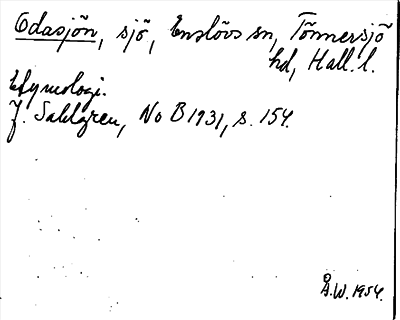 Odasjön, sjö, Enslövs sn, Tönnersjö
hd, Hall. l.
Etymologi.
J. Sahlgren, No B 1931, s. 154.
Å.W. 1954.